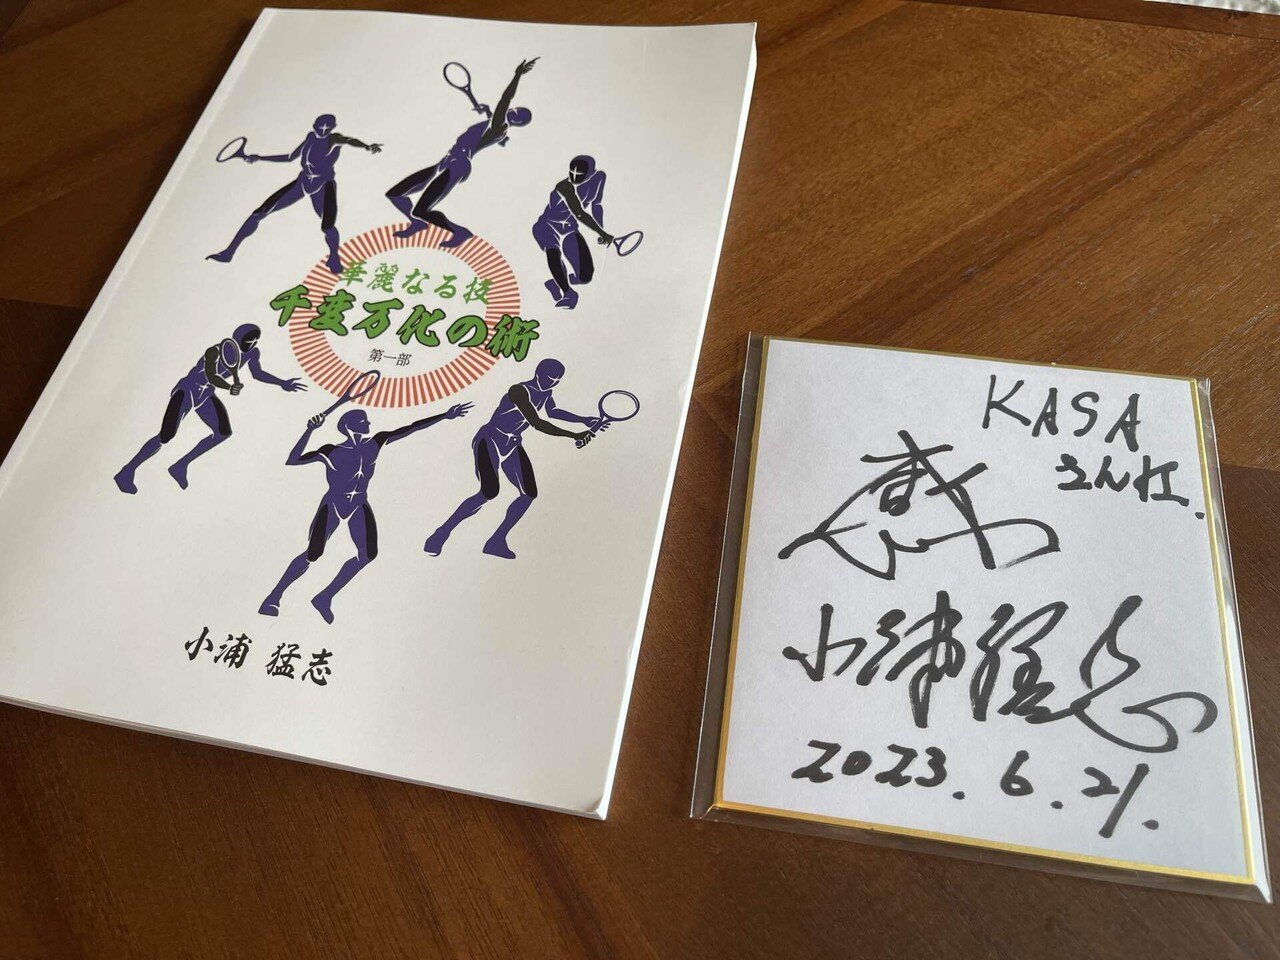 華麗なる技
千変万化の術
第一部
小浦 猛志
KASA
さん江.
感
小浦猛志
2023.6.21.